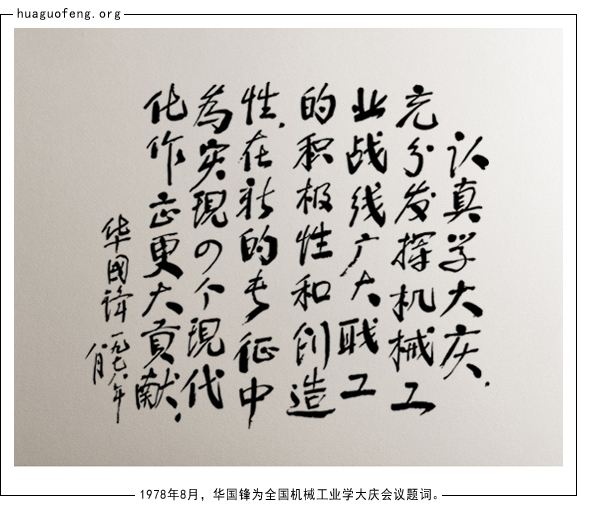 huaguofeng.org
认真学大庆，
充分发挥机械工
业战线广大职工
的积极性和创造
性，在新的长征中
為实現四个現代
化作出更大貢献。
华國锋 一九七八年
八月
1978年8月，华国锋为全国机械工业学大庆会议题词。